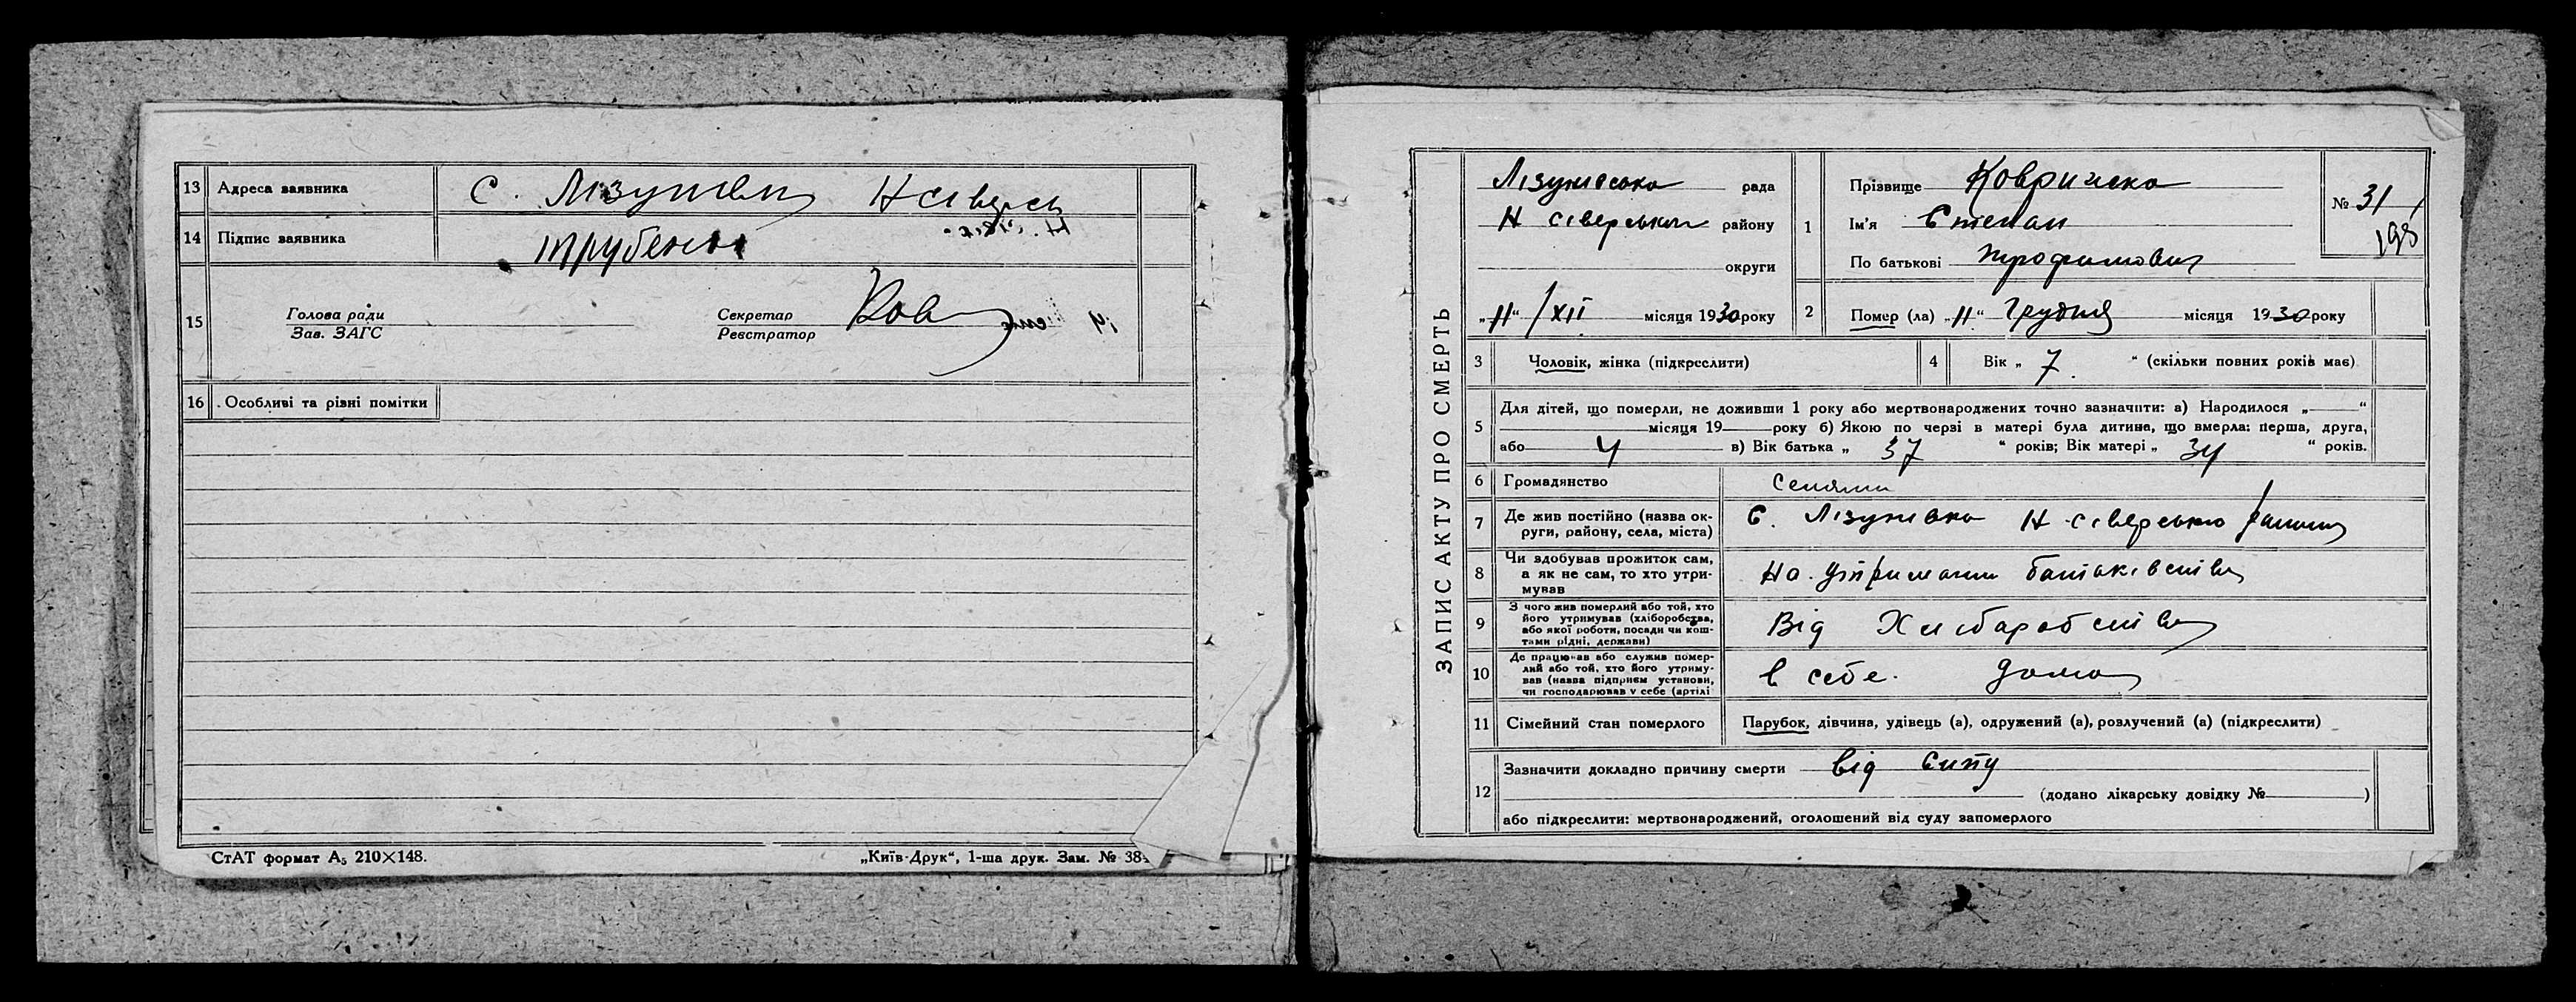 13 Адреса заявника с. Лізунівки
14 Підпис заявника
15 Голова ради
Зав. ЗАГС
Секретар
Реєстратор
16 Особливі та різні помітки
СтАТ формат А₅ 210×148. „Київ-Друк“, 1-ша друк. Зам. № 38
ЗАПИС АКТУ ПРО СМЕРТЬ
Лізунівська рада
Н Сіверський району
округи
„11“ /XII місяця 1930 року
1 Прізвище
Ім'я Степан
По батькові Трофимович
№ 31
198
2 Помер (ла) „11“ Грудня місяця 1930 року
3 Чоловік, жінка (підкреслити)
4 Вік „ 7. “ (скільки повних років має)
5 Для дітей, що померли, не доживши 1 року або мертвонароджених точно зазначити: а) Народилося „ “
місяця 19 року б) Якою по черзі в матері була дитина, що вмерла: перша, друга,
або 4 в) Вік батька „ 37 “ років; Вік матері „ 34 “ років.
6 Громадянство
7 Де жив постійно (назва ок-
руги, району, села, міста) С. Лізунівка Н-Сіверського району
8 Чи здобував прожиток сам,
а як не сам, то хто утри-
мував На утриманні батьківстві
9 З чого жив померлий або той, хто
його утримував (хліборобства,
або якої роботи, посади чи кош-
тами рідні, держави) Від Хліборобства
10 Де працював або служив помер-
лий або той, хто його утриму-
вав (назва підприєм установи,
чи господарював у себе (артілі в себе. дома
11 Сімейний стан померлого Парубок, дівчина, удівець (а), одружений (а), розлучений (а) (підкреслити)
12 Зазначити докладно причину смерти від
(додано лікарську довідку № )
або підкреслити: мертвонароджений, оголошений від суду запомерлого